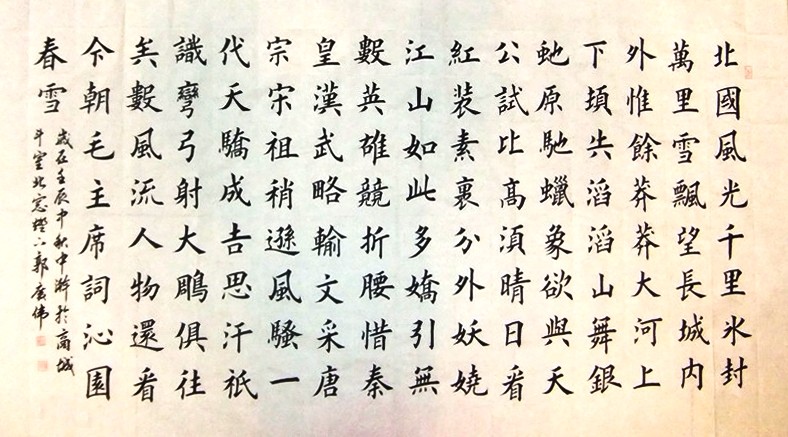 北國風光千里氷封
萬里雪飄望長城内
外惟餘莽莽大河上
下頓失滔滔山舞銀
虵原馳蠟象欲與天
公試比高須晴日看
紅装素裹分外妖嬈
江山如此多嬌引無
數英雄競折腰惜秦
皇漢武略輸文采唐
宗宋祖稍遜風騷一
代天驕成吉思汗祇
識彎弓射大鵰俱往
矣數風流人物還看
今朝毛主席詞沁園
春雪
歲在壬辰中秋中澣於商城
斗室北窓燈下郭广伟